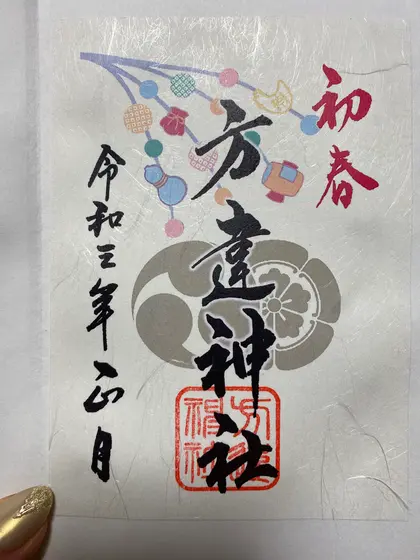 初春
方違神社
令和三年正月
方違
神社